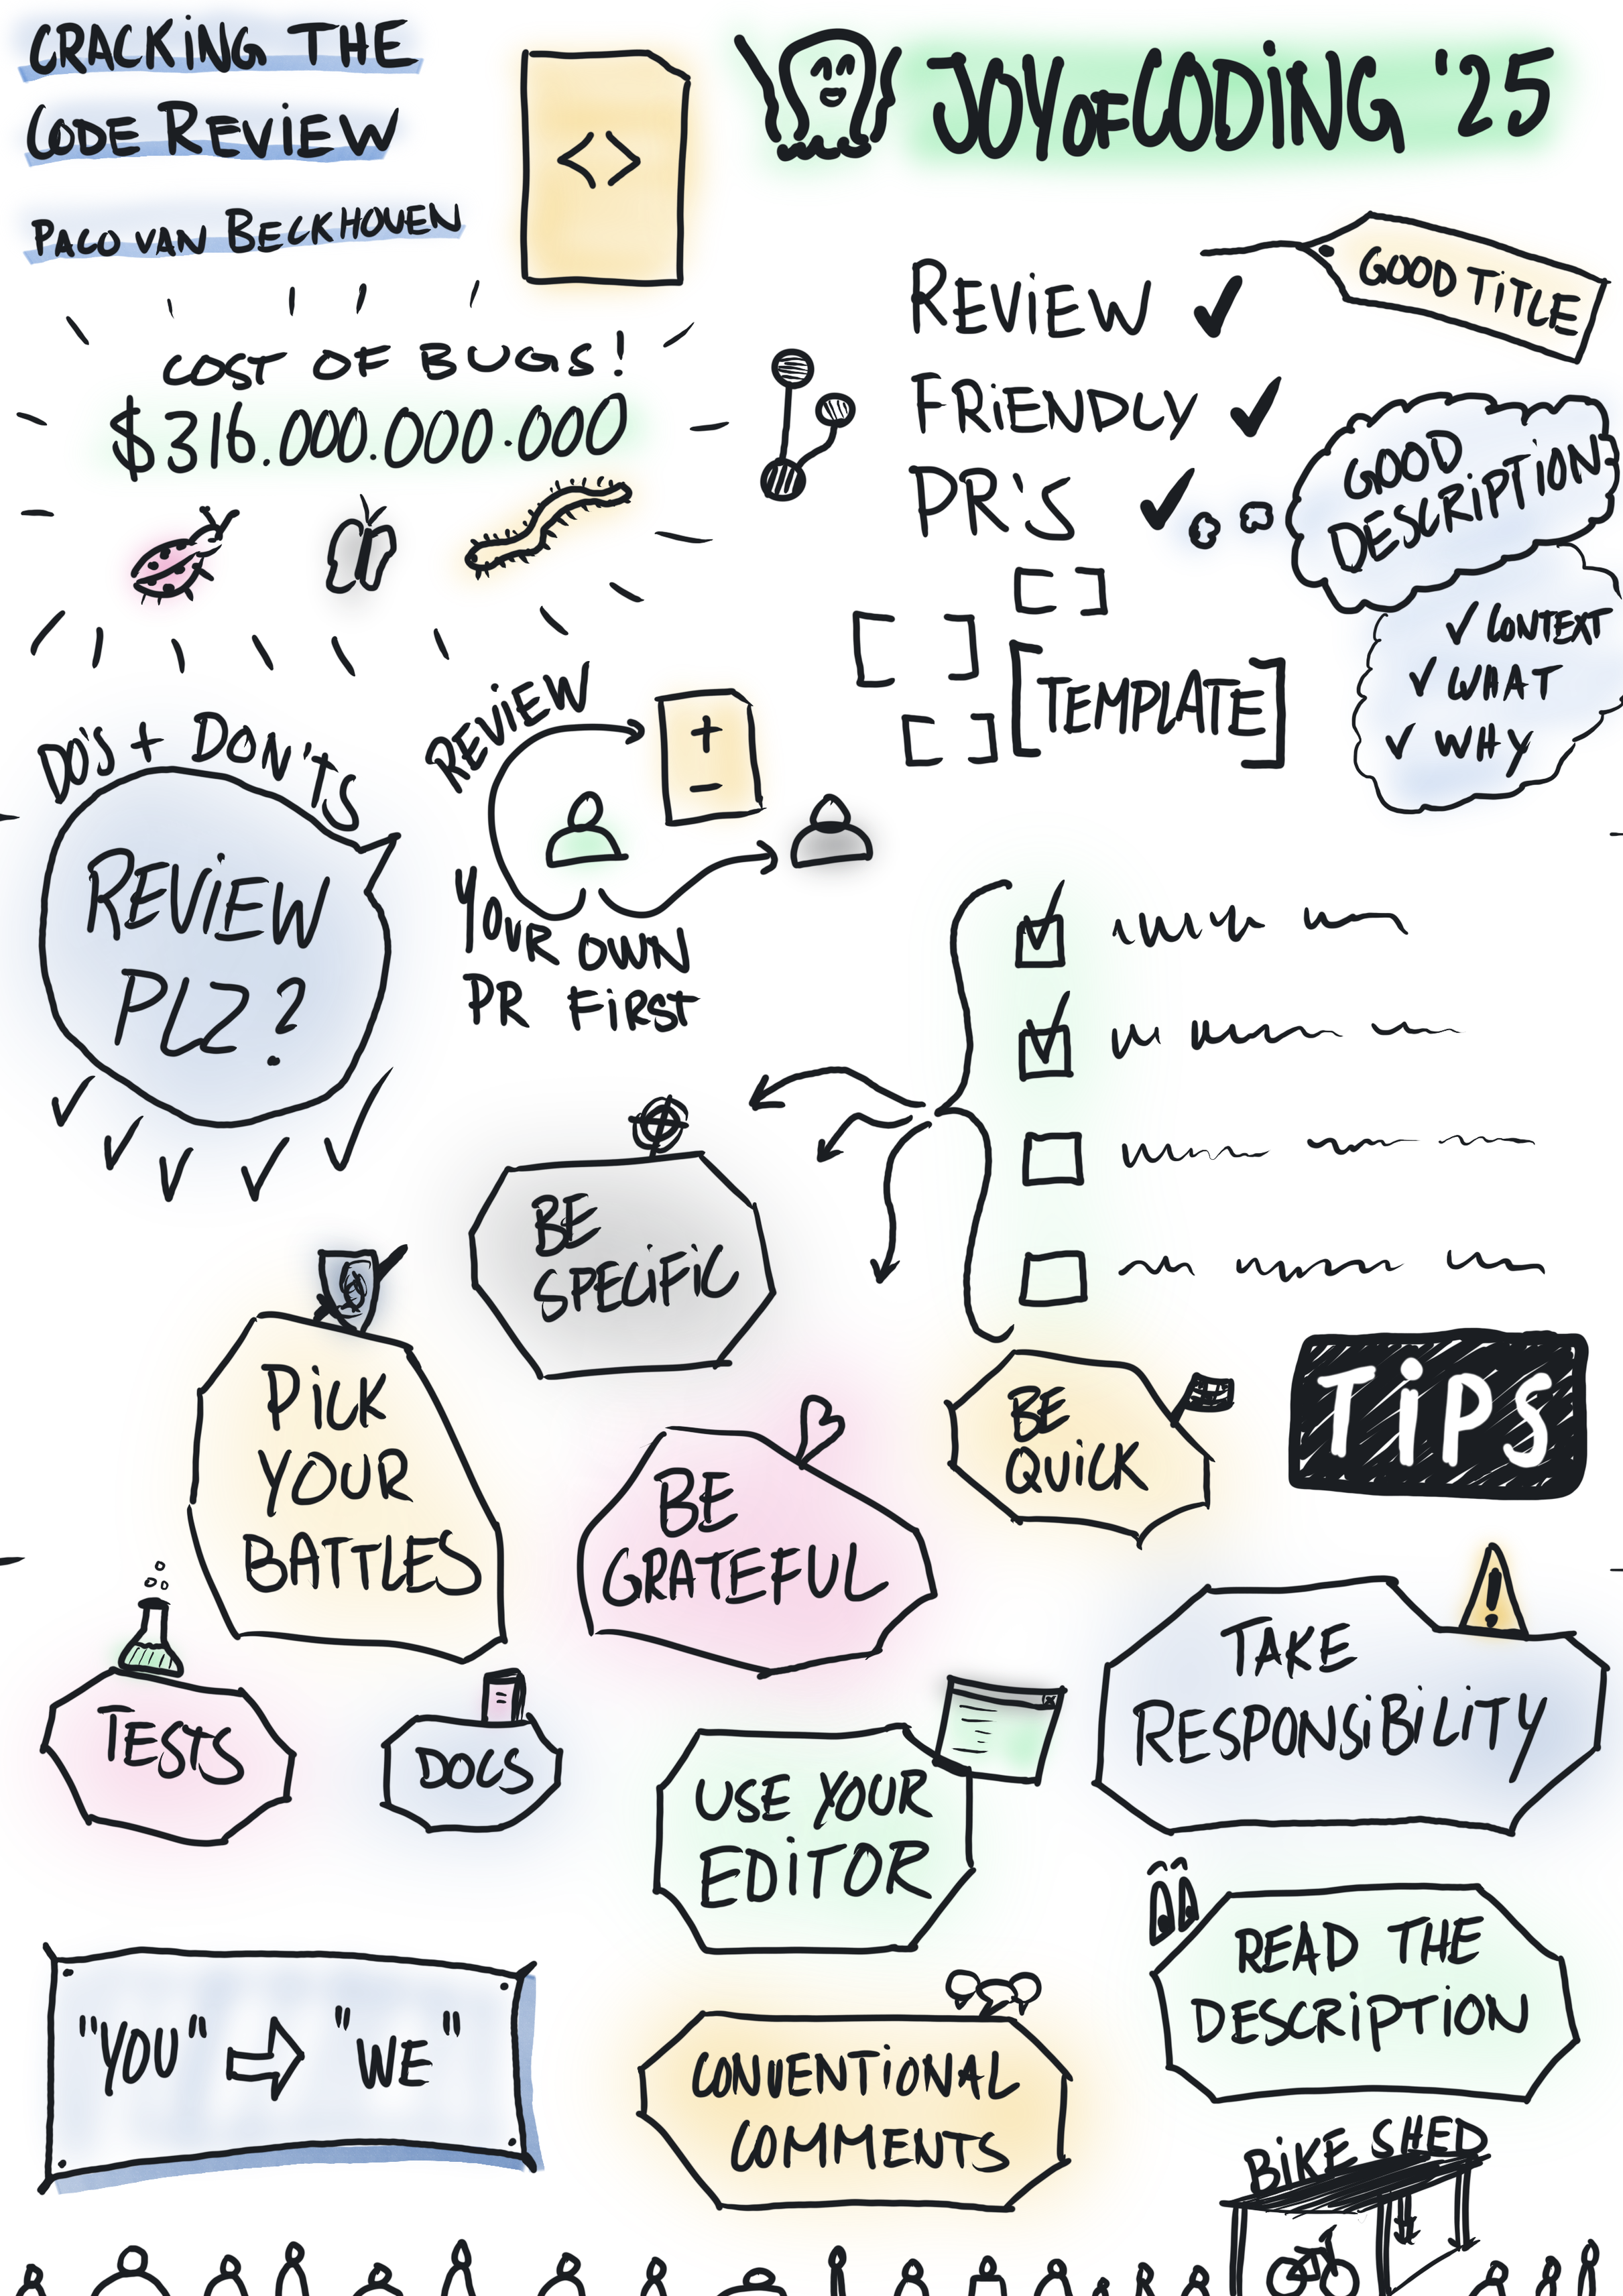 CRACKING THE
CODE REVIEW
PACO VAN BECKHOVEN
<>
JOY OF CODING '25
COST OF BUGS!
$316.000.000.000
REVIEW
FRIENDLY
PR'S
GOOD TITLE
GOOD
DESCRIPTION
CONTEXT
WHAT
WHY
[ ]
[ ]
[TEMPLATE]
[ ]
DO'S + DON'TS
REVIEW
PLZ?
REVIEW
YOUR OWN
PR FIRST
+
-
BE
SPECIFIC
PICK
YOUR
BATTLES
BE
GRATEFUL
BE
QUICK
TIPS
TESTS
DOCS
USE YOUR
EDITOR
TAKE
RESPONSIBILITY
!
READ THE
DESCRIPTION
"YOU" ⇨ "WE"
CONVENTIONAL
COMMENTS
BIKE SHED